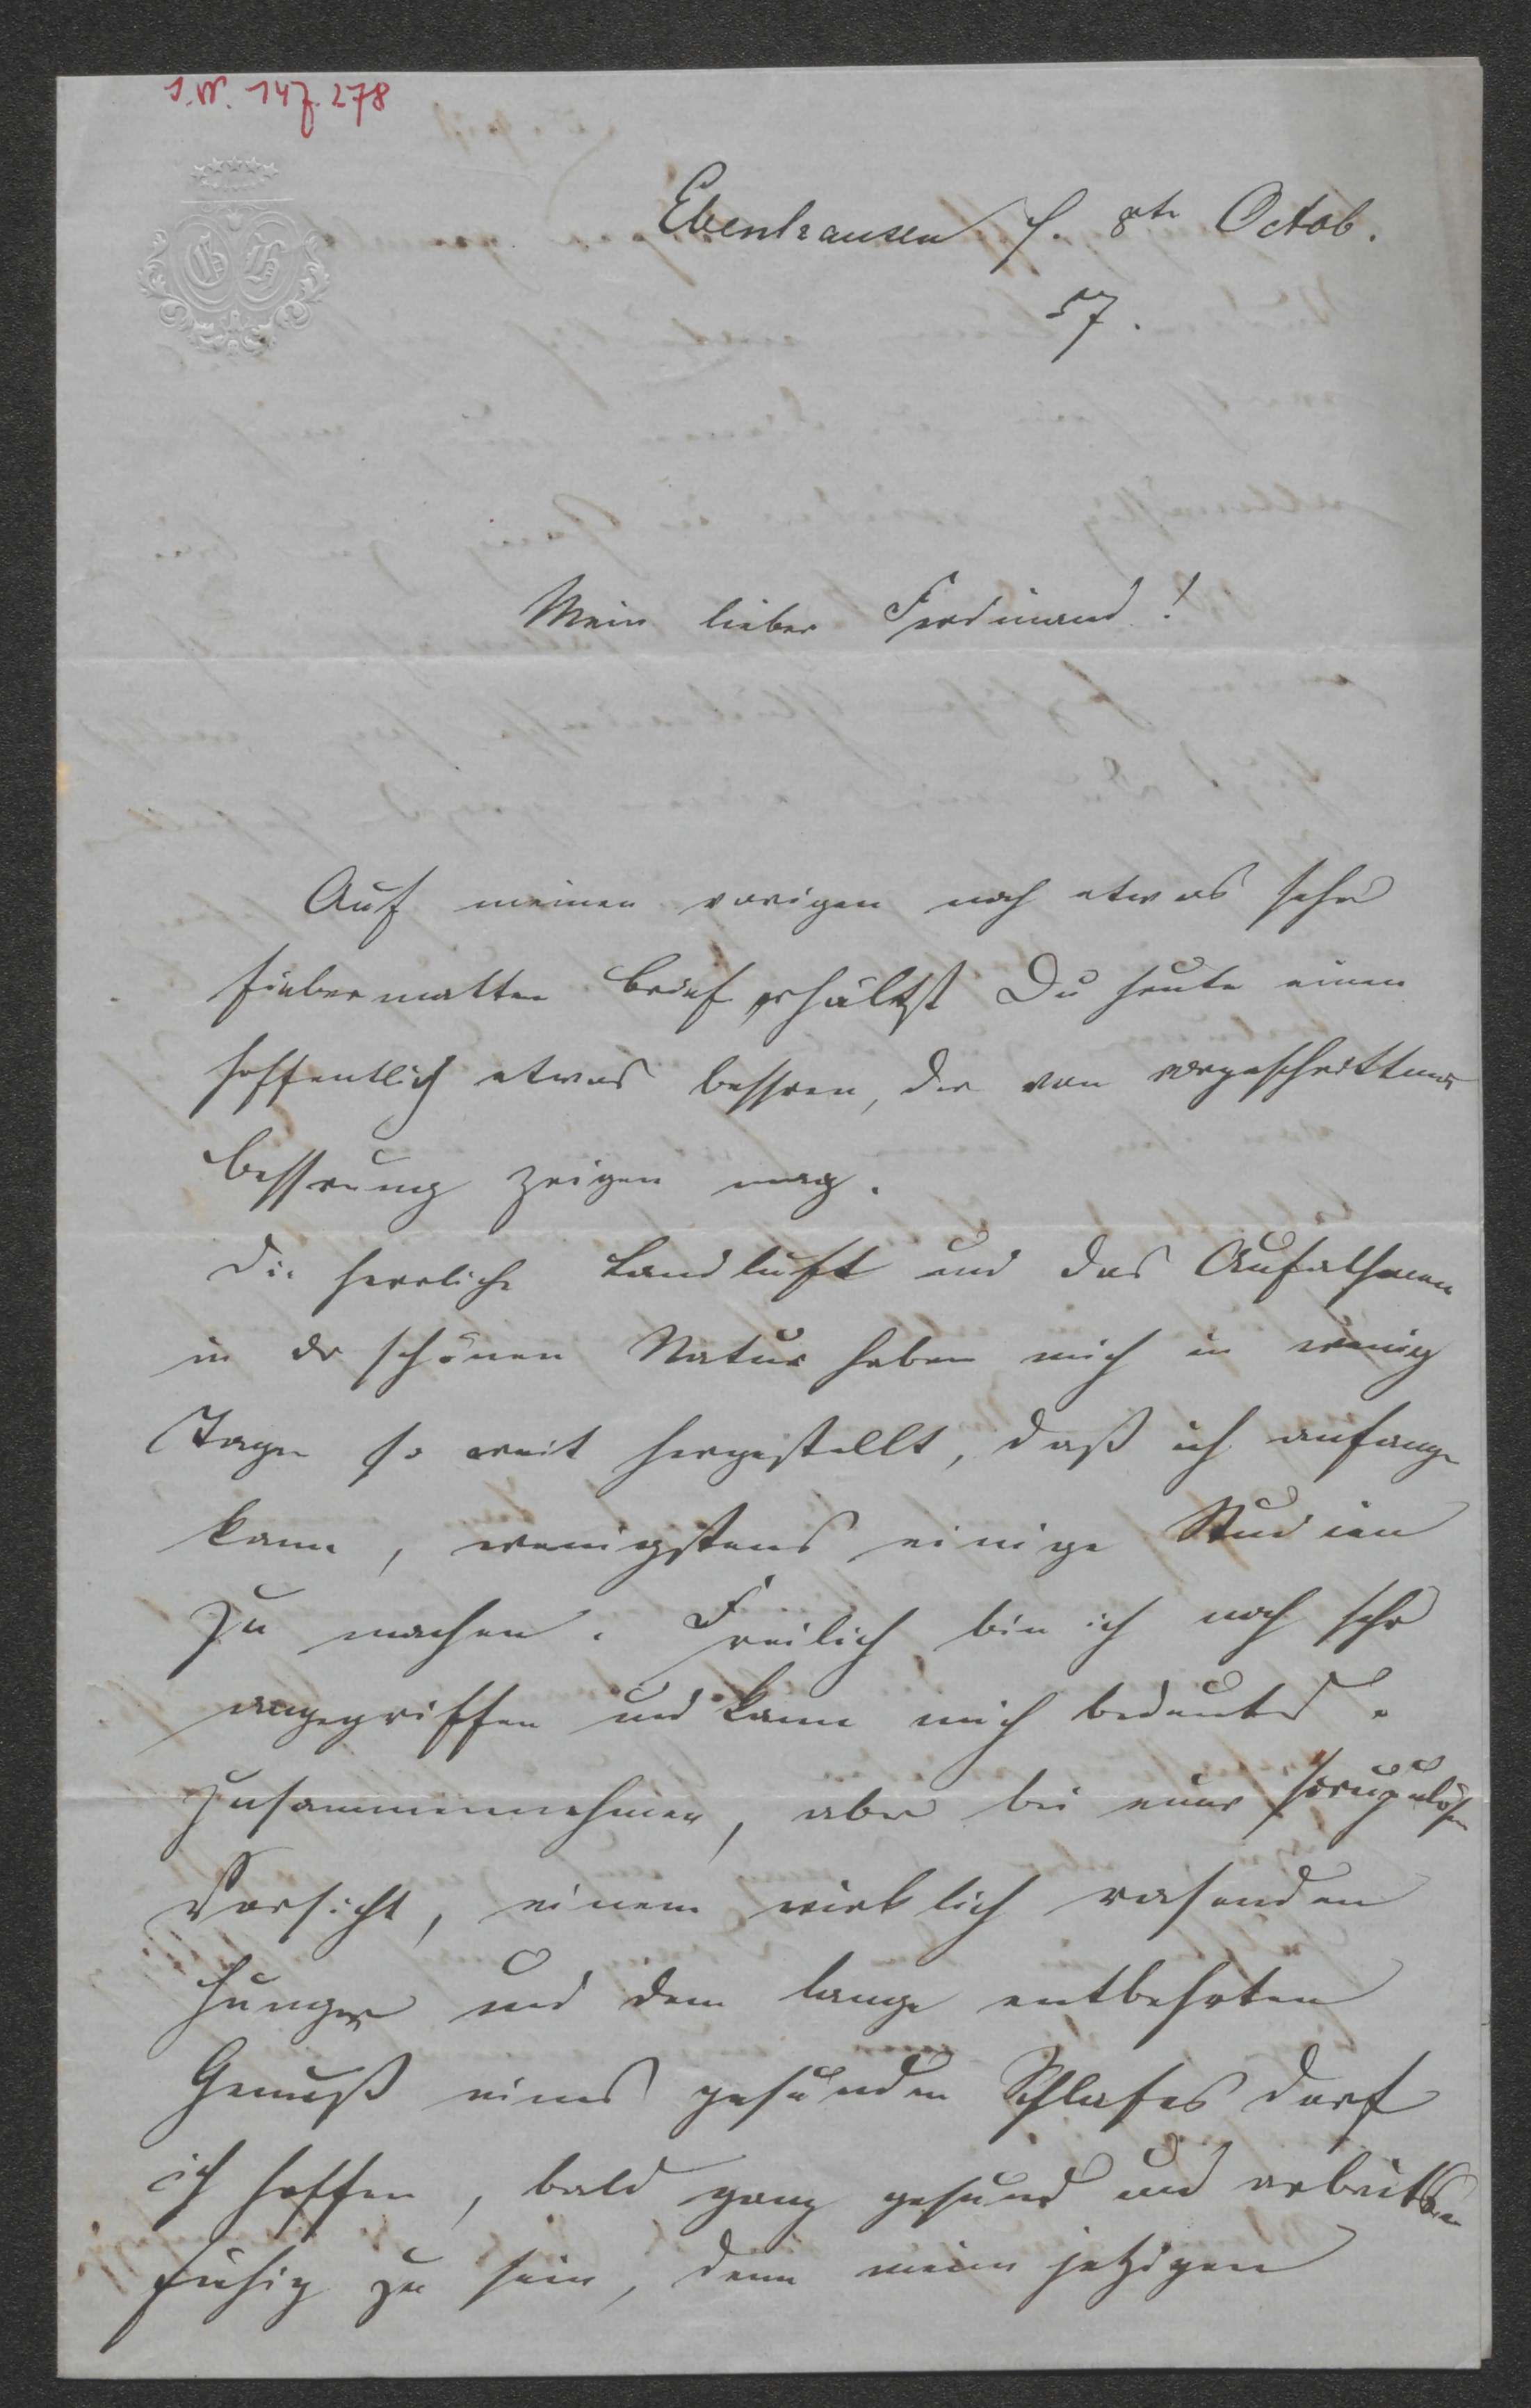 J.N. 147.278
G H
Ebenhausen d. 8te Octob.
57.
Mein lieber Ferdinand!
Auf meinen vorigen noch etwas sehr
fiebermatten Brief erhältst Du heute einen
hoffentlich etwas bessren, der von vorgeschrittner
Bessrung zeigen mag.
Die herrliche Landluft und das Aufathmen
in der schönen Natur haben mich in wenig
Tagen so weit hergestellt, daß ich anfangen
kann, wenigstens einige Studien
zu machen. Freilich bin ich noch sehr
angegriffen und kann mich bedeutend
zusammennehmen, aber bei einer scrupulösen
Vorsicht, einem wirklich rasenden
Hunger und dem lange entbehrten
Genuß eines gesunden Schlafes darf
ich hoffen, bald ganz gesund und arbeits
fähig zu sein, denn meine jetzigen